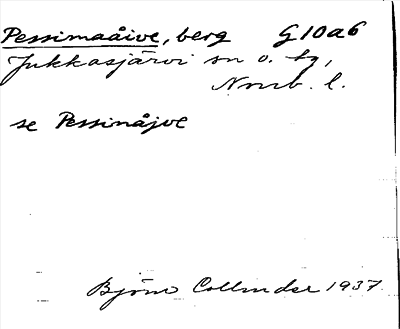 Pessimaåive, berg G10a6
Jukkasjärvi sn o. tg,
Nmb. l.
se Pessinåjve
Björn Collinder 1937